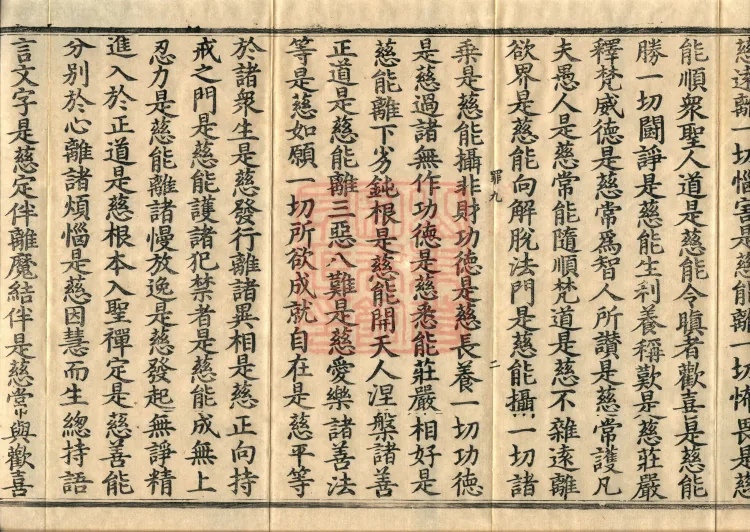 慈遠離一切惱害是慈能離一切怖畏是慈
能順衆聖人道是慈能令瞋者歡喜是慈能
勝一切鬪諍是慈能生利養稱歎是慈莊嚴
釋梵威德是慈常爲智人所讚是慈常護凡
夫愚人是慈常能隨順梵道是慈不雜遠離
欲界是慈能向解脫法門是慈能攝一切諸
九 二
乘是慈能攝非財功德是慈長養一切功德
是慈過諸無作功德是慈悉能莊嚴相好是
慈能離下劣鈍根是慈能開天人涅槃諸善
正道是慈能離三惡八難是慈愛樂諸善法
等是慈如願一切所欲成就自在是慈平等
於諸衆生是慈發行離諸異相是慈正向持
戒之門是慈能護諸犯禁者是慈能成無上
忍力是慈能離諸慢放逸是慈發起無諍精
進入於正道是慈根本入聖禪定是慈善能
分别於心離諸煩惱是慈因慧而生總持語
言文字是慈定伴離魔結伴是慈常與歡喜